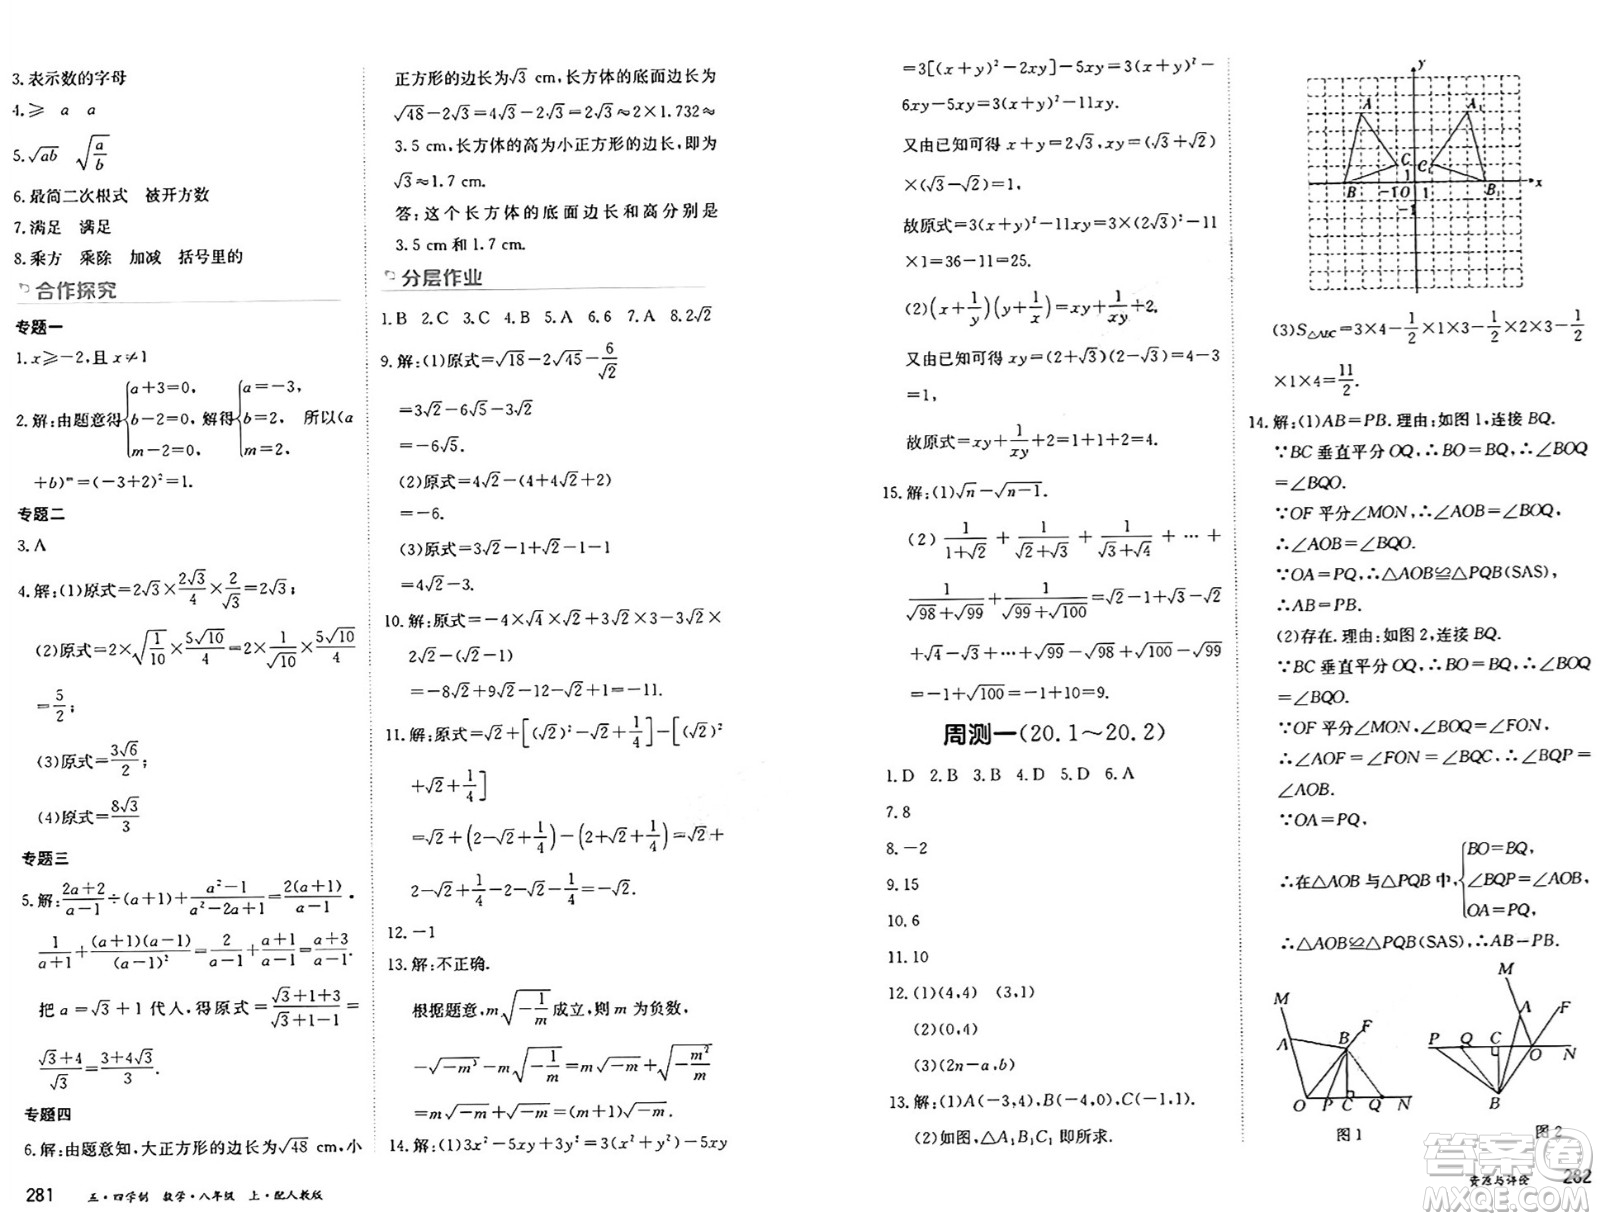 3.表示数的字母
4.≥ a a
5.√ab √(a/b)
6.最简二次根式 被开方数
7.满足 满足
8.乘方 乘除 加减 括号里的
合作探究
专题一
1.x≥-2,且x≠1
2.解:由题意得{a+3=0, b-2=0, m-2=0,解得{a=-3, b=2, m=2, 所以(a
+b)^m=(-3+2)²=1.
专题二
3.A
4.解:(1)原式=2√3×(2√3)/4×2/√3=2√3;
(2)原式=2×√(1/10)×(5√10)/4=2×1/√10×(5√10)/4
=5/2;
(3)原式=(3√6)/2;
(4)原式=(8√3)/3
专题三
5.解:(2a+2)/(a-1)÷(a+1)+(a²-1)/(a²-2a+1)=2(a+1)/(a-1)·
1/(a+1)+(a+1)(a-1)/(a-1)²=2/(a-1)+(a+1)/(a-1)=(a+3)/(a-1).
把a=√3+1代人,得原式=(√3+1+3)/(√3+1-1)=
(√3+4)/√3=(3+4√3)/3.
专题四
6.解:由题意知,大正方形的边长为√48 cm,小
281 五·四学制 数学·八年级 上·配人教版
正方形的边长为√3 cm,长方体的底面边长为
√48-2√3=4√3-2√3=2√3≈2×1.732≈
3.5 cm,长方体的高为小正方形的边长,即为
√3≈1.7 cm.
答:这个长方体的底面边长和高分别是
3.5 cm和1.7 cm.
分层作业
1.B 2.C 3.C 4.B 5.A 6.6 7.A 8.2√2
9.解:(1)原式=√18-2√45-6/√2
=3√2-6√5-3√2
=-6√5.
(2)原式=4√2-(4+4√2+2)
=-6.
(3)原式=3√2-1+√2-1-1
=4√2-3.
10.解:原式=-4×√4×√2+3√2×3-3√2×
2√2-(√2-1)
=-8√2+9√2-12-√2+1=-11.
11.解:原式=√2+[(√2)²-√2+1/4]-[(√2)²
+√2+1/4]
=√2+(2-√2+1/4)-(2+√2+1/4)=√2+
2-√2+1/4-2-√2-1/4=-√2.
12.-1
13.解:不正确.
根据题意,m√(-1/m)成立,则m为负数,
-√(-m³)-m√(-1/m)=-√(-m³)+√(-m²/m)
=m√-m+√-m=(m+1)√-m.
14.解:(1)3x²-5xy+3y²=3(x²+y²)-5xy
=3[(x+y)²-2xy]-5xy=3(x+y)²-
6xy-5xy=3(x+y)²-11xy.
又由已知可得x+y=2√3,xy=(√3+√2)
×(√3-√2)=1,
故原式=3(x+y)²-11xy=3×(2√3)²-11
×1=36-11=25.
(2)(x+1/y)(y+1/x)=xy+1/xy+1+1=xy+1/xy+2.
又由已知可得xy=(2+√3)(2-√3)=4-3
=1,
故原式=xy+1/xy+2=1+1+2=4.
15.解:(1)√n-√(n-1).
(2)1/(1+√2)+1/(√2+√3)+1/(√3+√4)+…+
1/(√98+√99)+1/(√99+√100)=√2-1+√3-√2
+√4-√3+…+√99-√98+√100-√99
=-1+√100=-1+10=9.
周测一(20.1~20.2)
1.D 2.B 3.B 4.D 5.D 6.A
7.8
8.-2
9.15
10.6
11.10
12.(1)(4,4) (3,1)
(2)(0,4)
(3)(2n-a,b)
13.解:(1)A(-3,4),B(-4,0),C(-1,1).
(2)如图,△A₁B₁C₁即所求.
y
A A₁
C 1 C₁
B -1 O 1 B₁ x
-1
(3)S△ABC=3×4-1/2×1×3-1/2×2×3-1/2
×1×4=11/2.
14.解:(1)AB=PB.理由:如图1,连接BQ.
∵BC垂直平分OQ,∴BO=BQ,∴∠BOQ
=∠BQO.
∵OF平分∠MON,∴∠AOB=∠BOQ,
∴∠AOB=∠BQO.
∵OA=PQ,∴△AOB≌△PQB(SAS),
∴AB=PB.
(2)存在.理由:如图2,连接BQ.
∵BC垂直平分OQ,∴BO=BQ,∴∠BOQ
=∠BQO.
∵OF平分∠MON,∠BOQ=∠FON,
∴∠AOF=∠FON=∠BQC,∴∠BQP=
∠AOB.
∵OA=PQ,
∴在△AOB与△PQB中,{BO=BQ, ∠BQP=∠AOB, OA=PQ,
∴△AOB≌△PQB(SAS),∴AB=PB.
M
A B F
O P C Q N
图1
M
A F
P Q C O N
B
图2
答案圈
MXQE.COM
资源与评价 282